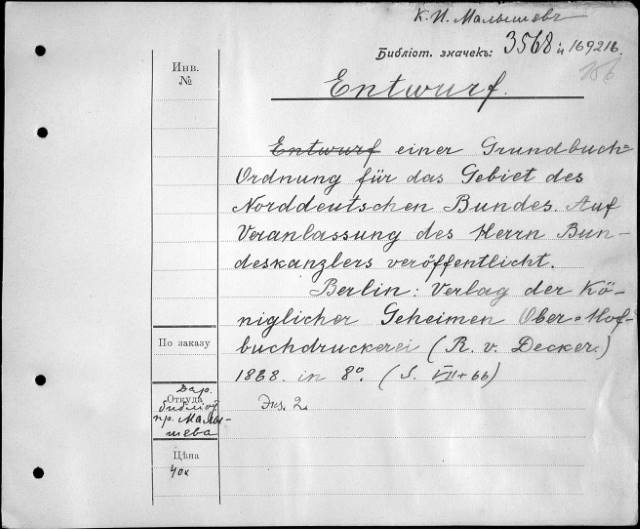 К. И. Малышевъ
Библіот. значекъ: 3568 и 169216.
Инв.
№
Entwurf.
Entwurf einer Grundbuch=
Ordnung für das Gebiet des
Norddeutschen Bundes. Auf
Veranlassung des Herrn Bun-
deskanzlers veröffentlicht.
Berlin: Verlag der Kö-
niglicher Geheimen Ober=Hof-
buchdruckerei (R. v. Decker.)
1868. in 8º. (S. VII+66)
По заказу
Дар.
Откуда
библіот
пр. Малы-
шева
Экз. 2
Цѣна
40к